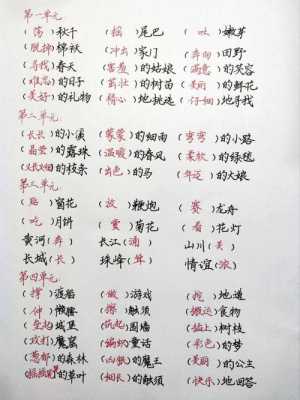 第一单元
（荡）秋千 （摇）尾巴 （吐）嫩芽
（脱掉）棉袄 （冲出）家门 （奔向）田野
（寻找）春天 （害羞）的姑娘 （满意）的笑容
（难忘）的日子 （茁壮）的树苗 （美丽）的鲜花
（美好）的礼物 （精心）地挑选 （仔细）地寻找
第二单元
（长长）的小溪 （蒙蒙）的细雨 （弯弯）的小路
（晶莹）的露珠 （温暖）的春风 （柔软）的绿毯
（又长又细）的枝条 （出色）的马 （年迈）的大娘
第三单元
（贴）窗花 （放）鞭炮 （赛）龙舟
（吃）月饼 （赏）菊花 （看）花灯
黄河（奔） 长江（涌） 山川（美）
长城（长） 珠峰（耸） 情谊（浓）
第四单元
（撑）渡船 （做）游戏 （挖）地道
（伸）懒腰 （擦）触须 （搬运）食物
（垒起）城堡 （筑起）围墙 （插上）树枝
（攻打）魔窟 （编织）童话 （彩色）的梦
（葱郁）的森林 （凶狠）的魔王 （美丽）的公主
（摇摇晃晃）的草叶 （细长）的触须 （快乐）地回答